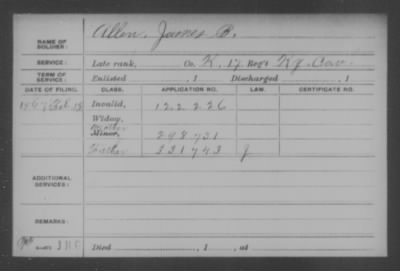 NAME OF SOLDIER: Allen, James B.
SERVICE: Late rank, Co. K, 17 Reg't Ky. Cav.
TERM OF SERVICE: Enlisted , 1 Discharged , 1
DATE OF FILING. CLASS. APPLICATION NO. LAW. CERTIFICATE NO.
1867 Invalid, 122 226
Widow,
Mother
Minor, 248 731
Father 331 743
ADDITIONAL SERVICES:
REMARKS:
Died , 1 , at